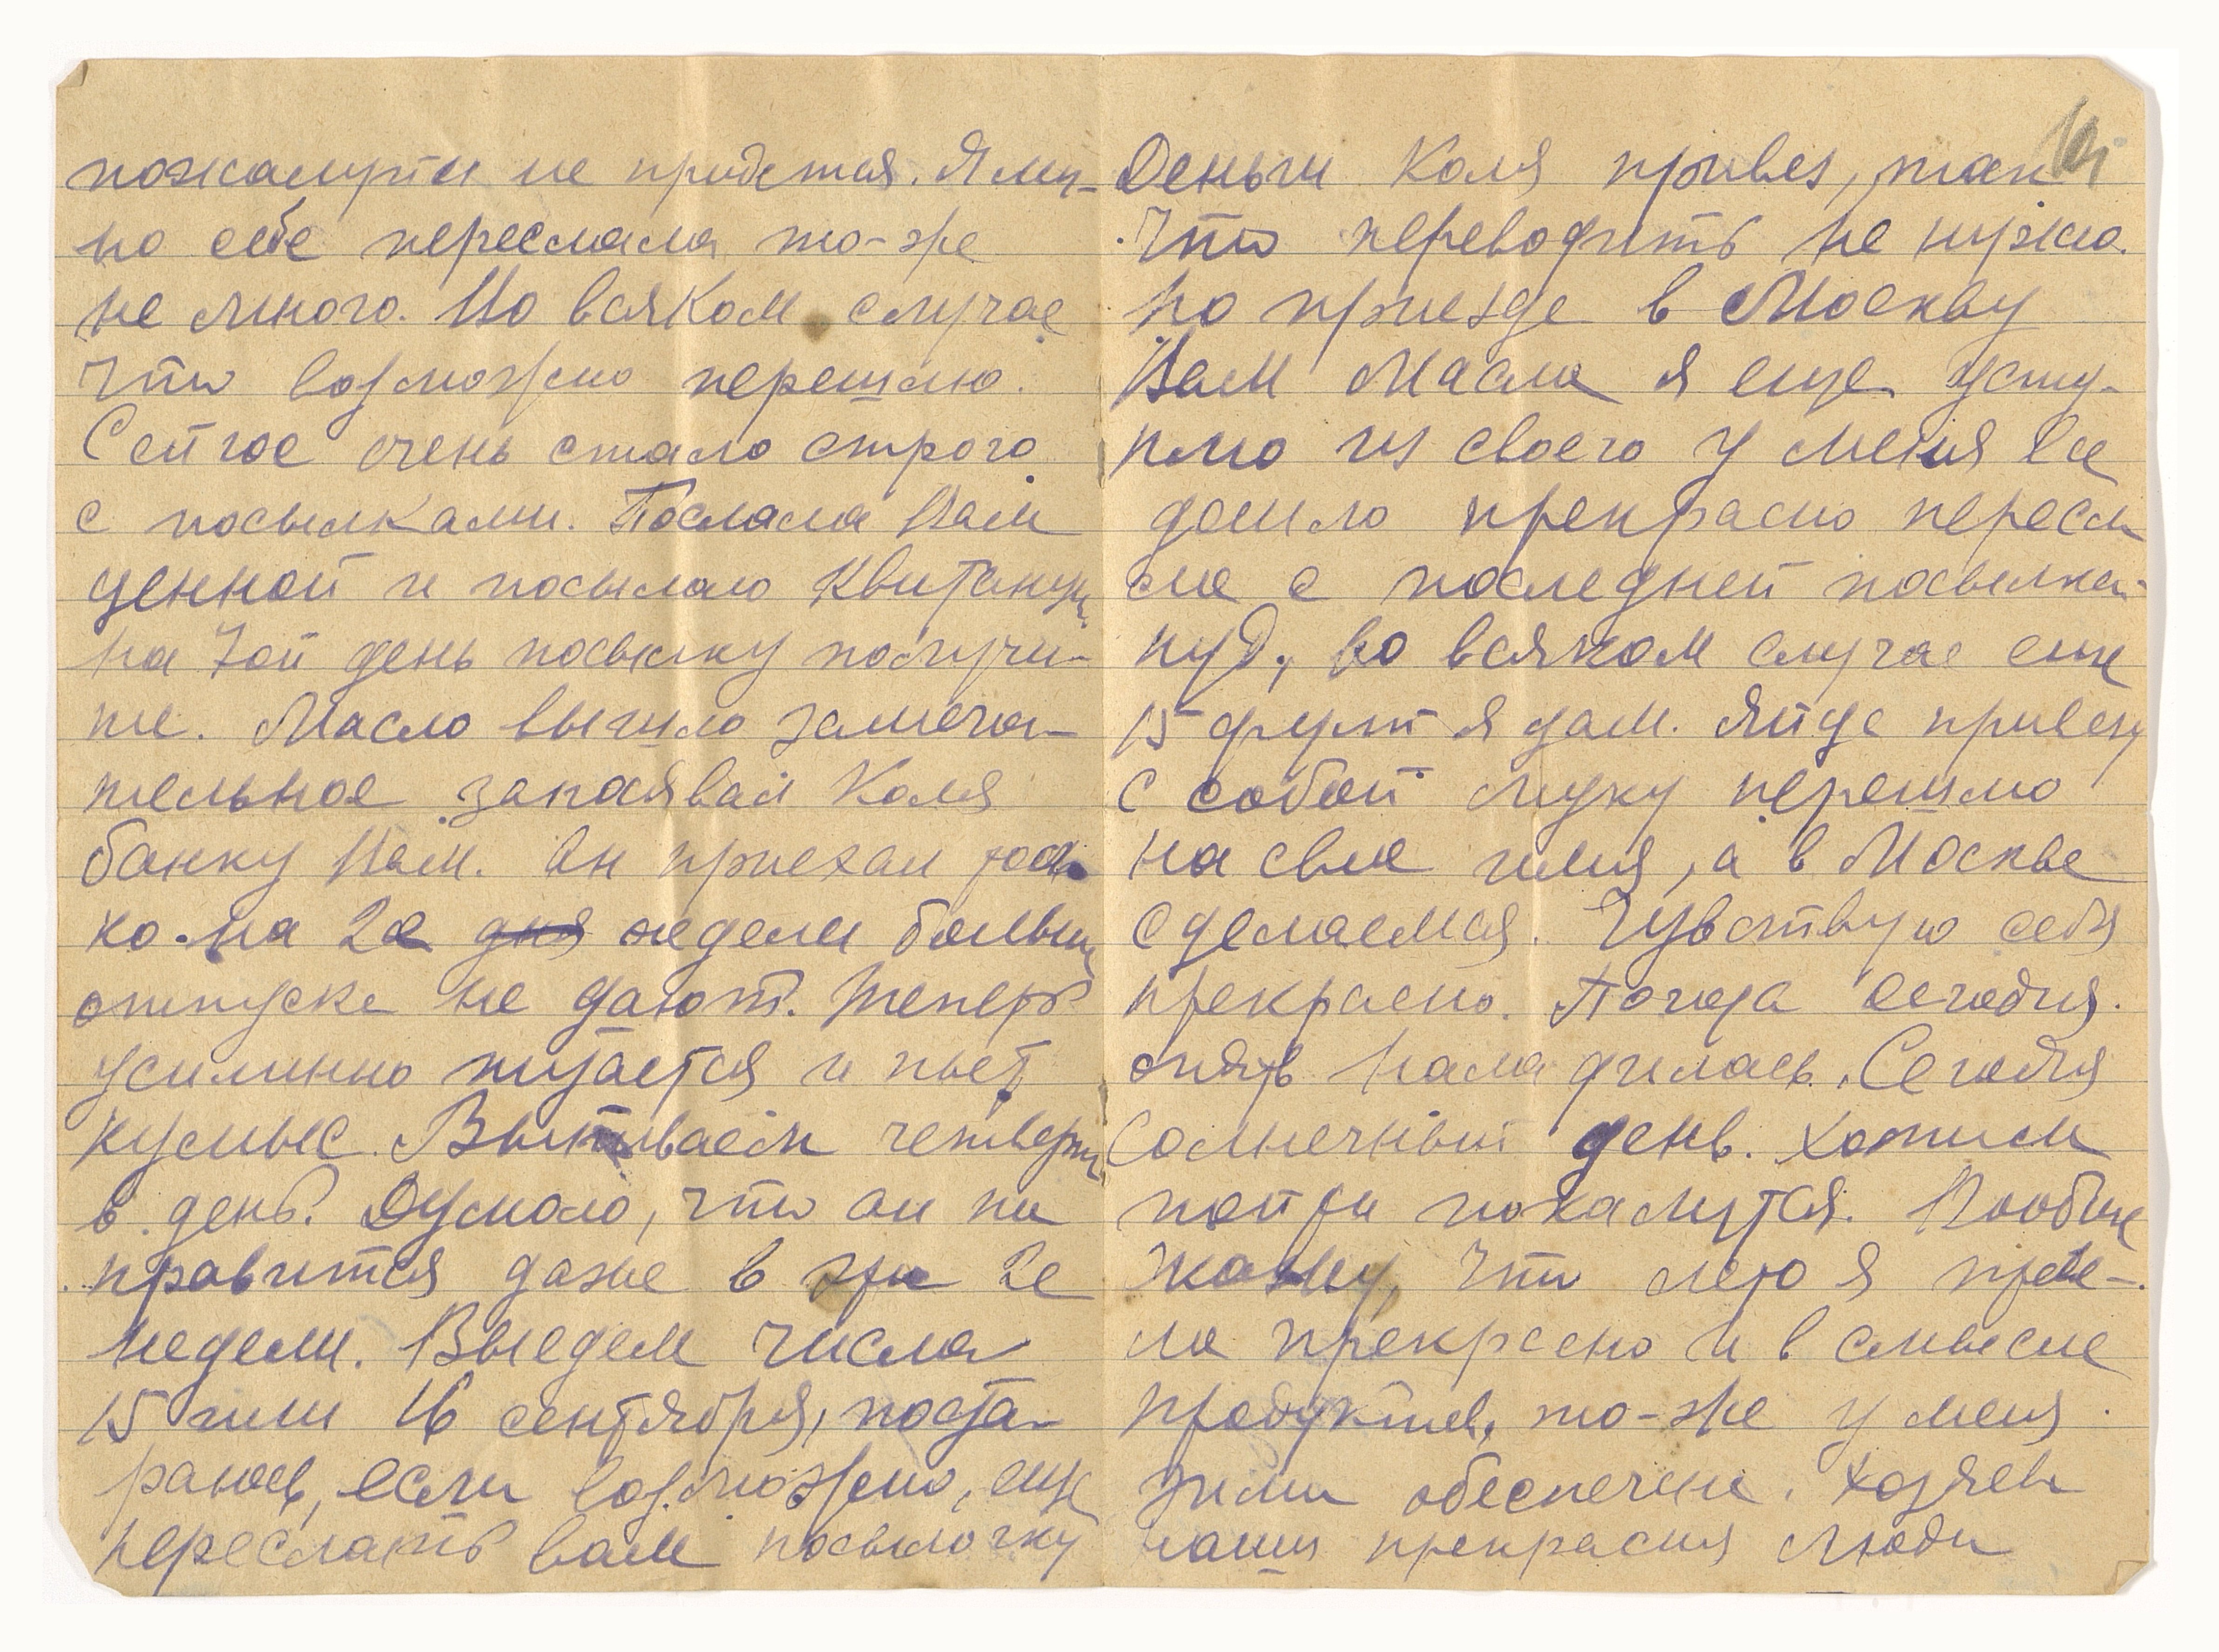 пожалуй не придется. Я лич-
но себе переслала то-же
не много. Но всяком случае
что возможно перешлю.
Сейчас очень стало строго
с посылками. Послала Вам
ценной и посылаю квитанцию
на 7ой день посылку получи-
те. Масло вышло замеча-
тельное запаявал Коля
банку Вам. Он приехал толь
ко на 2е дня недели больше
отпуска не дают. Теперь
усиленно питается и пьет
кумыс. Выпиваем четверть
в день. Думаю, что он по
правится даже в эти 2е
недели. Выедем числа
15 или 16 сентября, поста-
раюсь, если возможно, еще
переслать вам посылочку
Деньги Коля привез, так
что переводить не нужно.
по приезде в Москву
Вам Масла я еще усту-
плю из своего у меня все
дошло прекрасно пересл
ла с последней посылкой
пуд, во всяком случае еще
15 фунт я дам. Яйца привезу
с собой муку перешлю
на свое имя, а в Москве
сделаемся. Чувствую себя
прекрасно. Погода сегодня.
опять наладилась. Сегодня
солнечный день. Хотим
пойти покататся. Вообще
скажу, что лето я прове-
ла прекрасно и в смысле
продуктов, то-же у меня
зима обеспечена. Хозяева
наши прекрасныя люди